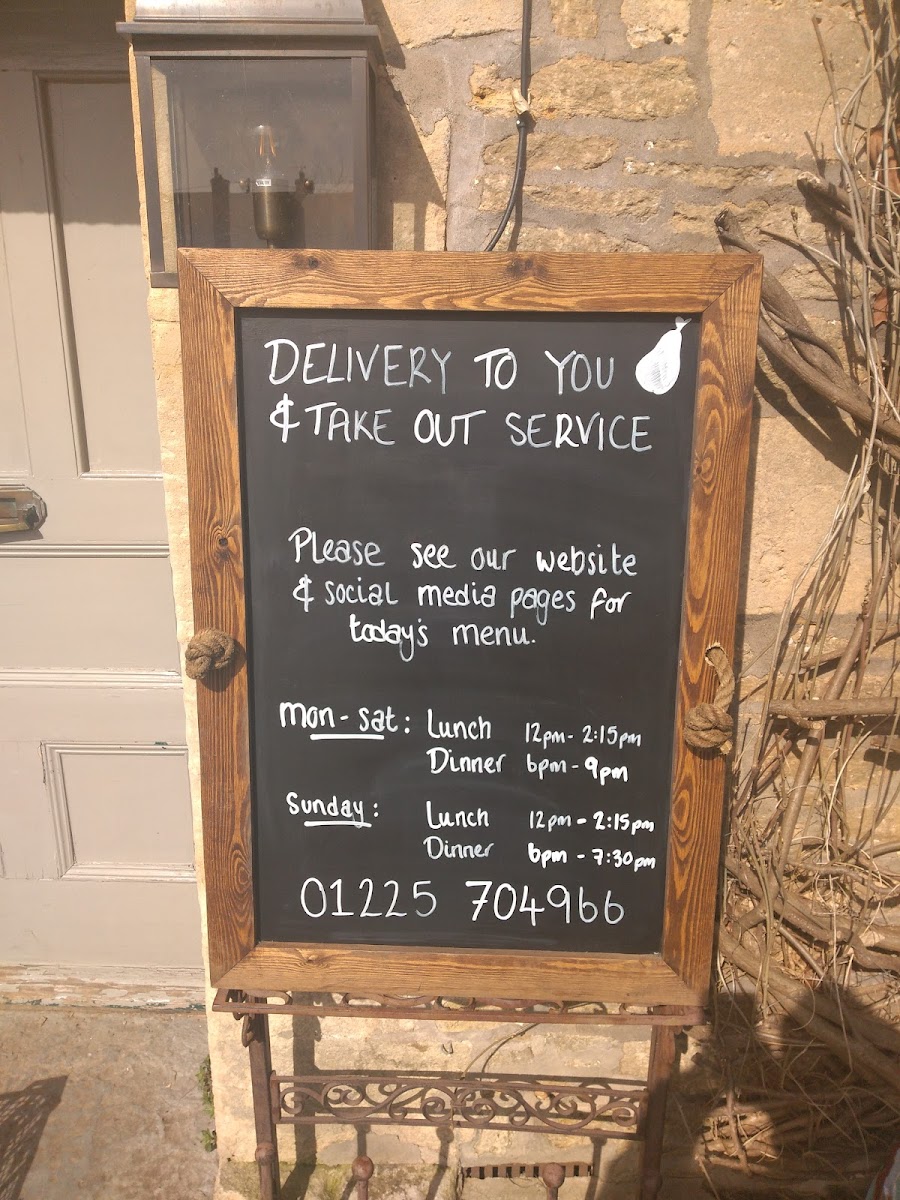 DELIVERY TO YOU
& TAKE OUT SERVICE
Please see our website
& social media pages for
today's menu.
Mon - Sat: Lunch 12pm - 2:15pm
Dinner 6pm - 9pm
Sunday: Lunch 12pm - 2:15pm
Dinner 6pm - 7:30pm
01225 704966